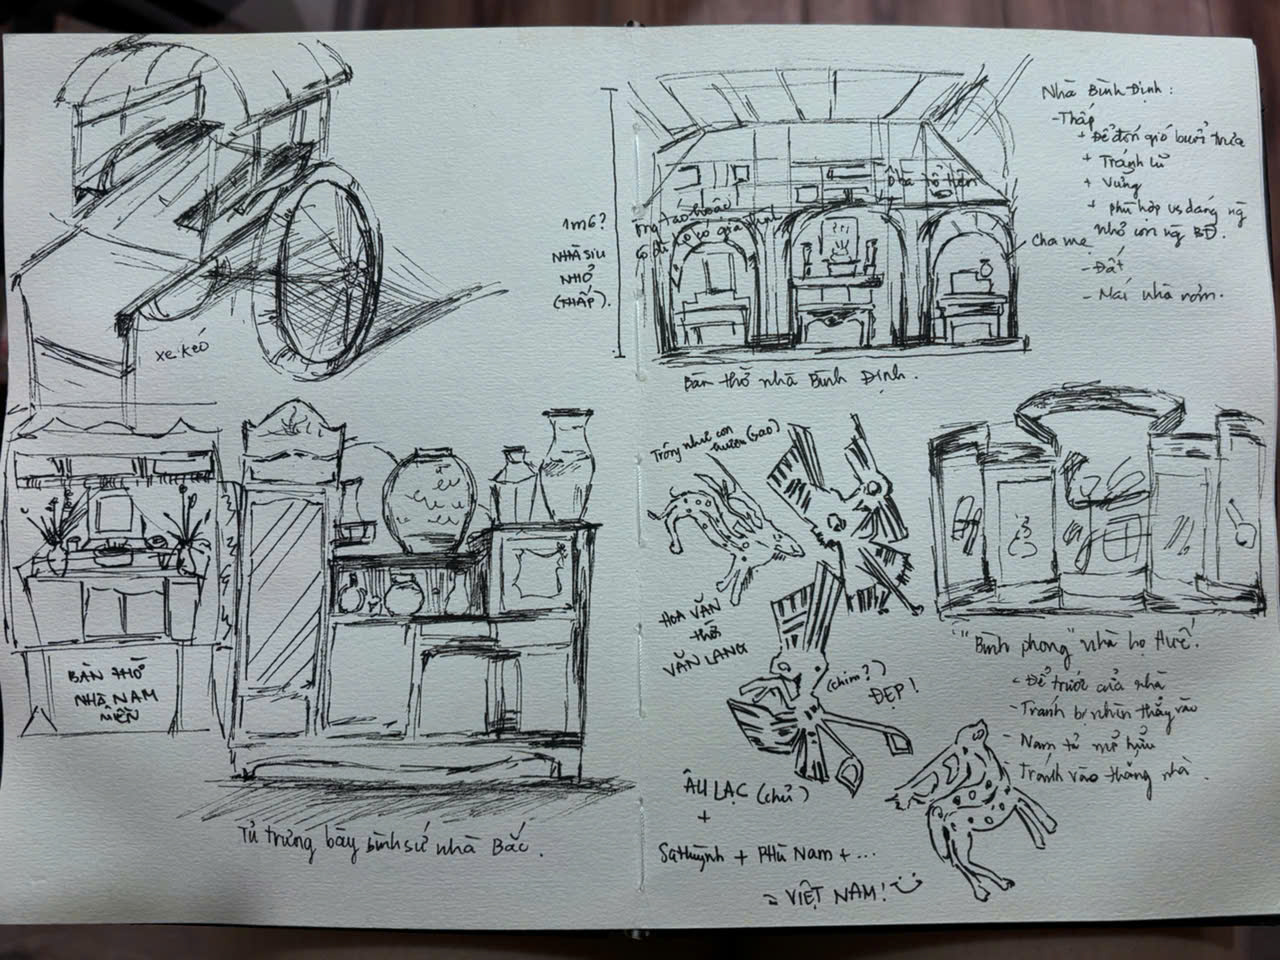 xe kéo
BÀN THỜ
NHÀ NAM
MIỀN
Tủ trưng bày bình sứ nhà Bắc.
1m6?
NHÀ SIU
NHỎ
(THẤP).
Ông táo hoặc
có gia
Cha mẹ
Bàn thờ nhà Bình Định.
Nhà Bình Định:
- Thấp
+ Để đón gió buổi trưa
+ Tránh lũ
+ Vững
+ phù hợp vs dáng ng
nhỏ con ng BĐ.
- Đất
- Mái nhà rơm.
Trông như con
(sao)
HOA VĂN
thời
VĂN LANG
(chim?)
ĐẸP!
ÂU LẠC (chủ)
+
Sa Huỳnh + PHÙ NAM + ...
= VIỆT NAM!
"Bình phong" nhà họ Huế.
- Để trước cửa nhà
- Tránh bị nhìn thẳng vào
- Nam tả nữ hữu
- Tránh vào thẳng nhà.